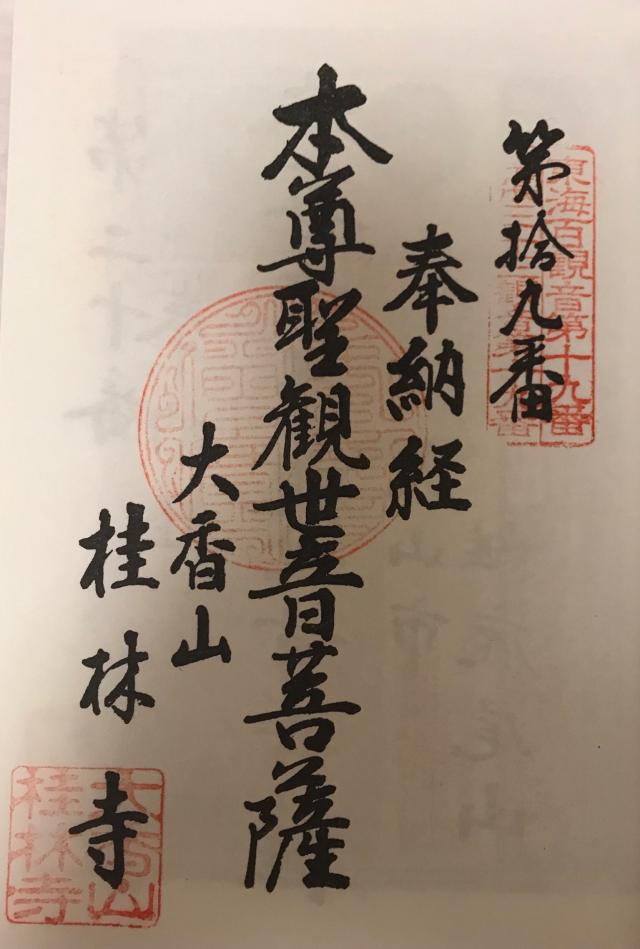 第拾九番
東海百観音第十九番
奉納経
本尊聖観世音菩薩
大香山
桂林寺
大香山
桂林寺